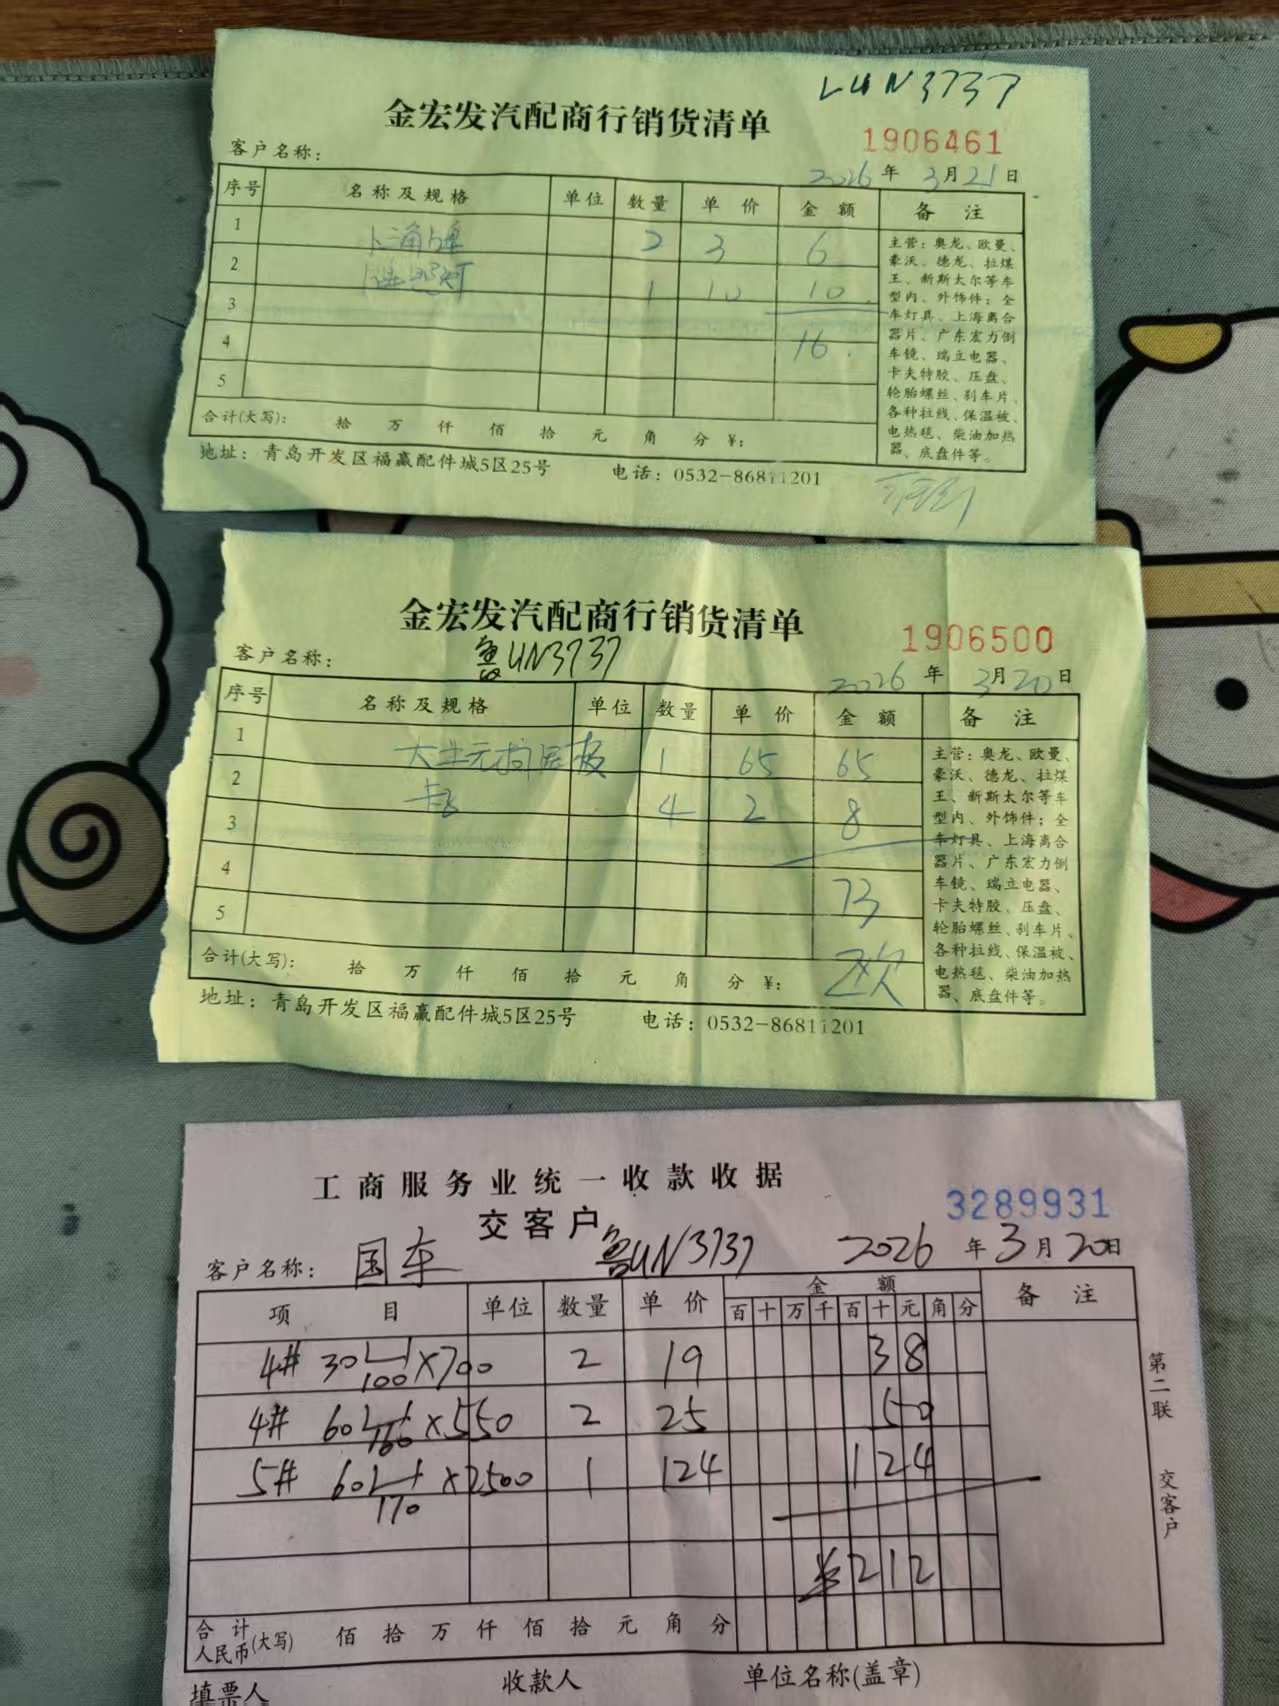 LUN3737
金宏发汽配商行销货清单
1906461
客户名称：
2026年3月21日
序号 名称及规格 单位 数量 单价 金额 备注
1 2 3 6
2 1 10 10
3
4 16
5
主营：奥龙、欧曼、
豪沃、德龙、拉煤
王、新斯太尔等车
型内、外饰件；全
车灯具、上海离合
器片、广东宏力倒
车镜、瑞立电器、
卡夫特胶、压盘、
轮胎螺丝、刹车片、
各种拉线、保温被、
电热毯、柴油加热
器、底盘件等。
合计(大写)： 拾 万 仟 佰 拾 元 角 分 ¥：
地址：青岛开发区福赢配件城5区25号 电话：0532-86811201
金宏发汽配商行销货清单
1906500
客户名称： 鲁UN3737
2026年3月20日
序号 名称及规格 单位 数量 单价 金额 备注
1 板 1 65 65
2 4 2 8
3
4 73
5
主营：奥龙、欧曼、
豪沃、德龙、拉煤
王、新斯太尔等车
型内、外饰件；全
车灯具、上海离合
器片、广东宏力倒
车镜、瑞立电器、
卡夫特胶、压盘、
轮胎螺丝、刹车片、
各种拉线、保温被、
电热毯、柴油加热
器、底盘件等。
合计(大写)： 拾 万 仟 佰 拾 元 角 分 ¥： 欠
地址：青岛开发区福赢配件城5区25号 电话：0532-86811201
工商服务业统一收款收据
交客户
3289931
客户名称： 国车 鲁UN3737 2026年3月20日
项目 单位 数量 单价 金额 备注
百 十 万 千 百 十 元 角 分
4# 30 100 ×700 2 19 38
4# 60 160 ×550 2 25 50
5# 60 170 ×2500 1 124 124
¥212
合计
人民币(大写) 佰 拾 万 仟 佰 拾 元 角 分
第二联 交客户
填票人 收款人 单位名称(盖章)